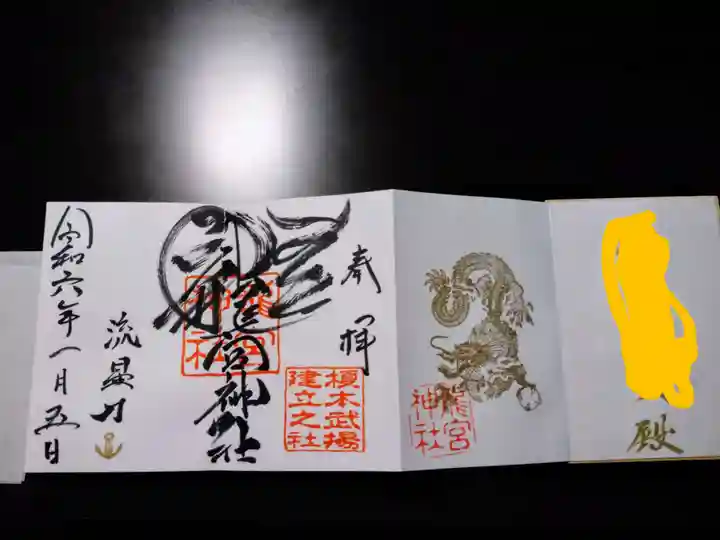 殿
龍宮
神社
奉拝
榎本武揚
建立之社
龍宮
神社
龍宮神社
流星刀
令和六年一月五日